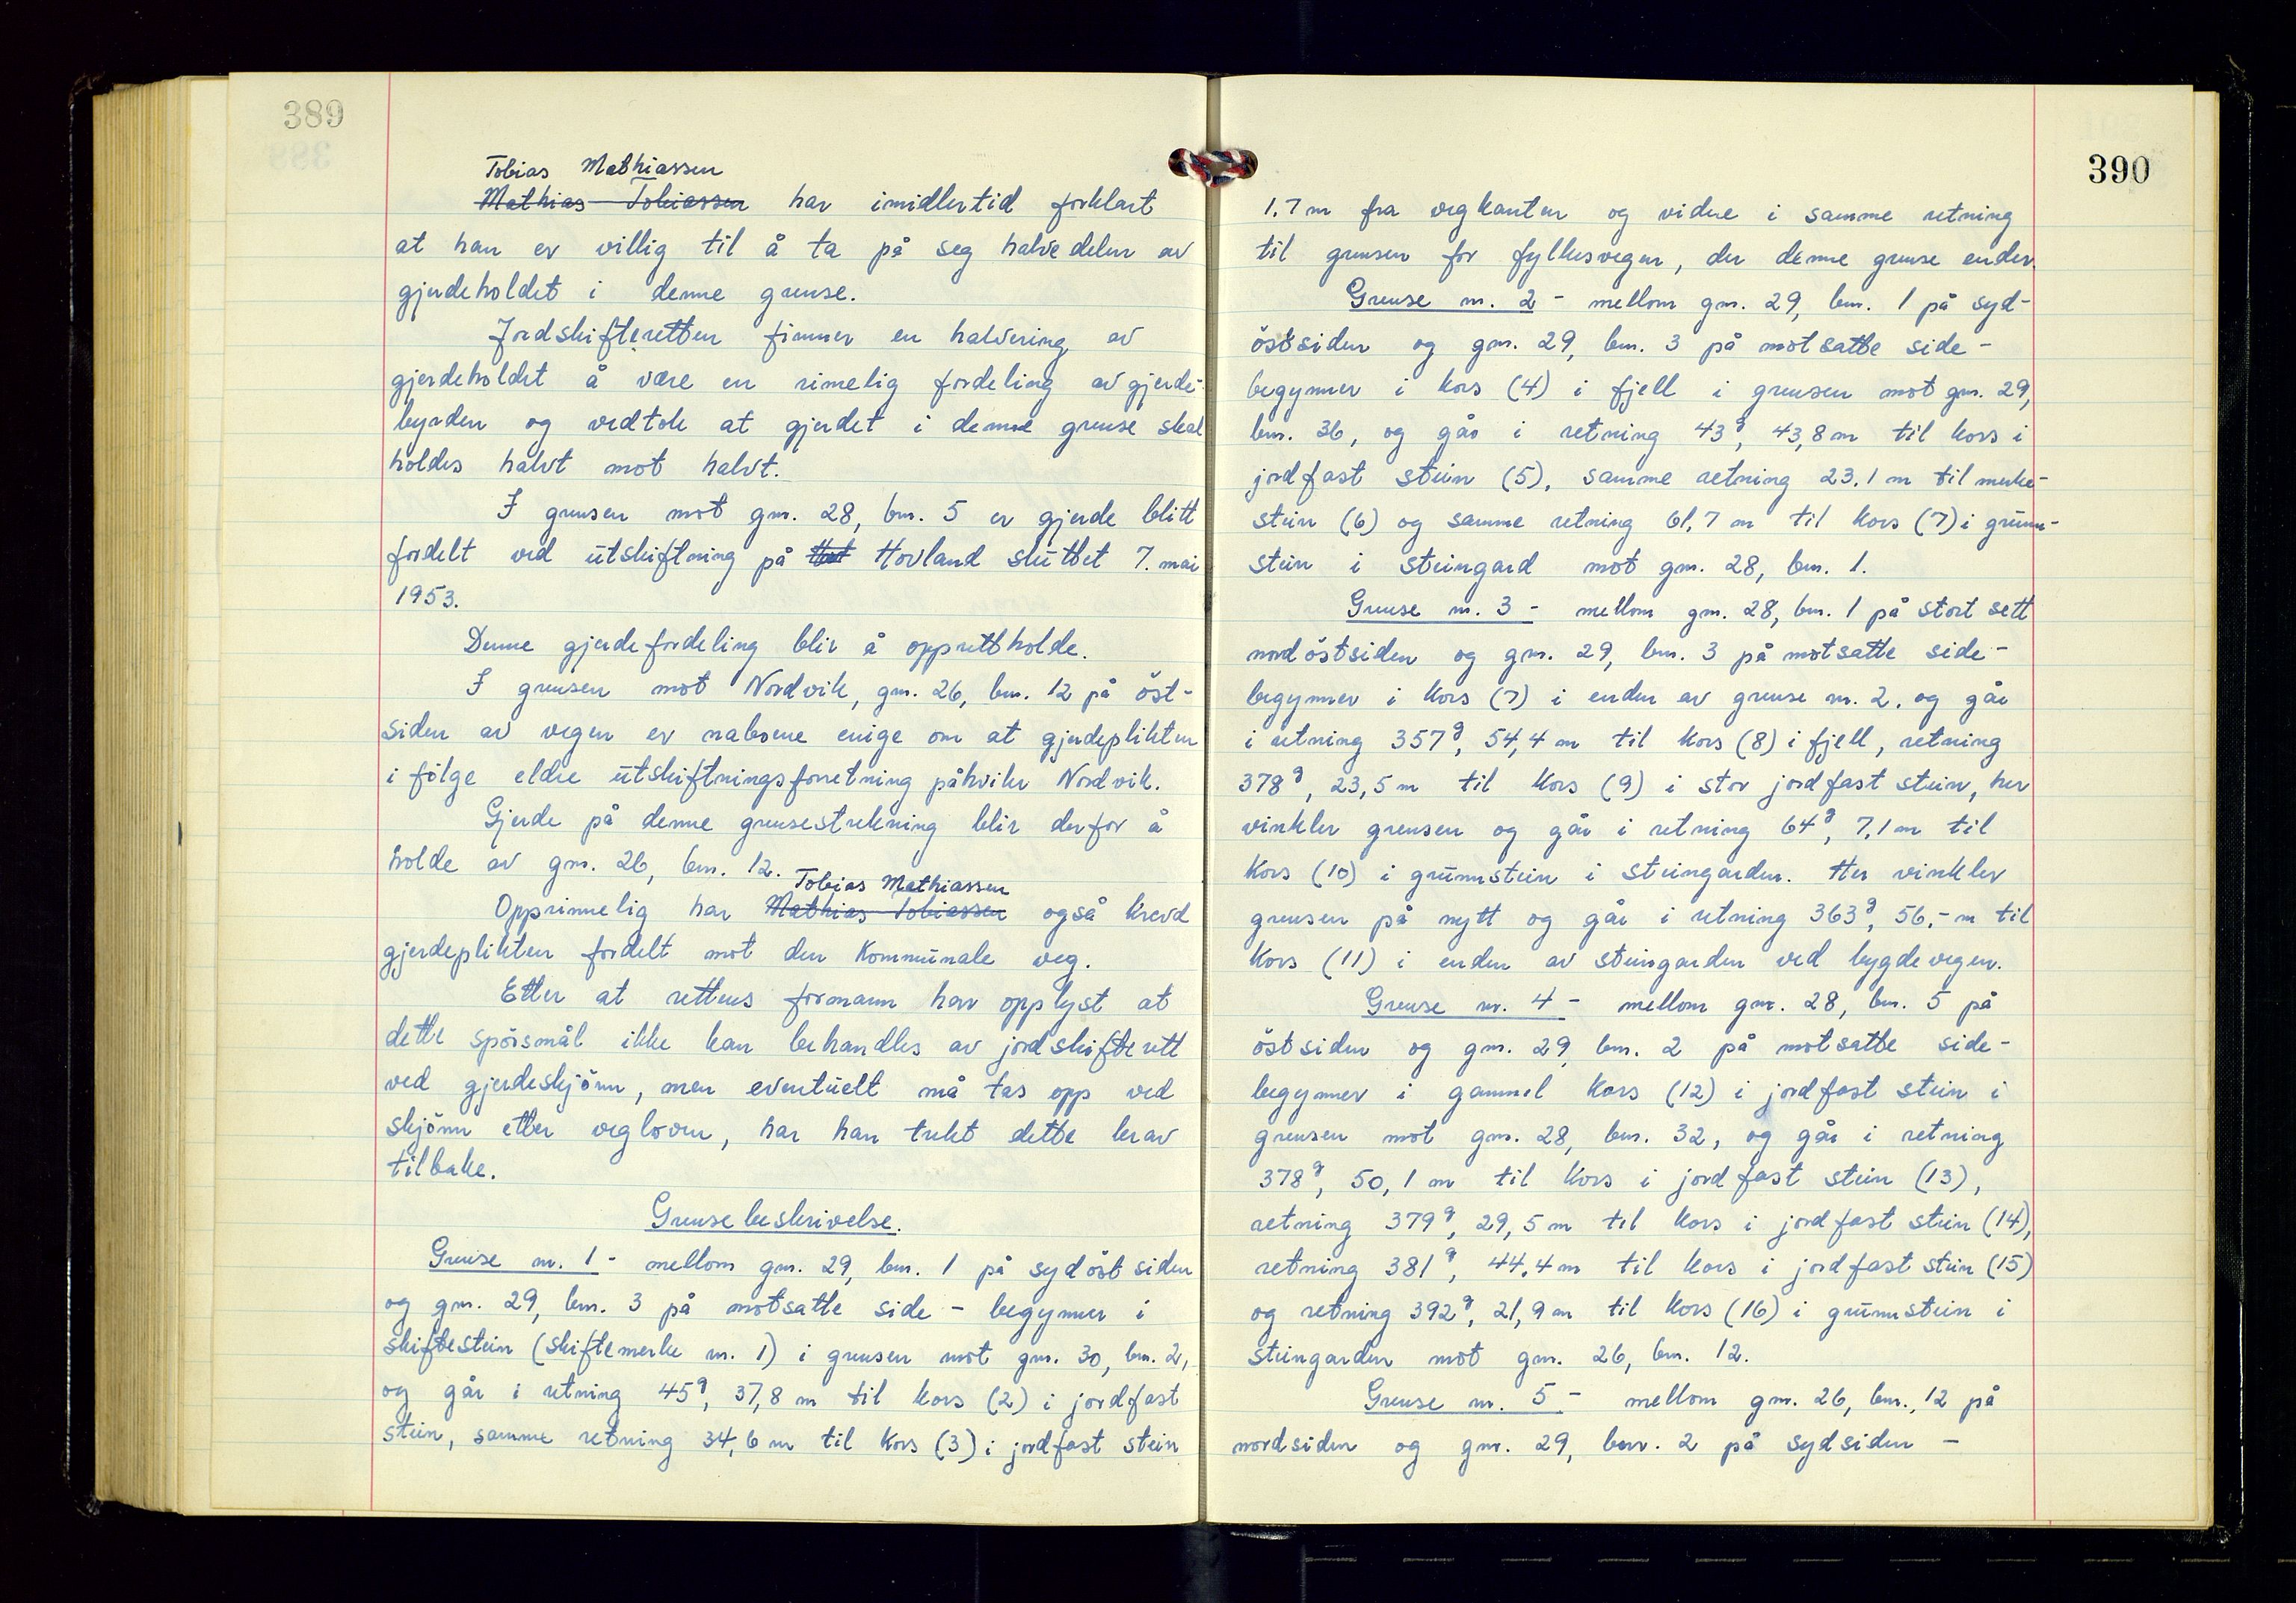 389
Tobias Mathiassen
Mathias Tobiassen har imidlertid forklart
at han er villig til å ta på seg halvedelen av
gjerdeholdet i denne grense.
Jordskifteretten finner en halvering av
gjerdeholdet å være en rimelig fordeling av gjerde-
byrden og vedtok at gjerdet i denne grense skal
holdes halvt mot halvt.
I grensen mot gnr. 28, bnr. 5 er gjerde blitt
fordelt ved utskiftning på Hovland sluttet 7. mai
1953.
Denne gjerdefordeling blir å opprettholde.
I grensen mot Nordvik, gnr. 26, bnr. 12 på öst-
siden av vegen er naboene enige om at gjerdeplikten
i fölge eldre utskiftningsforretning påhviler Nordvik.
Gjerde på denne grensestrekning blir derfor å
holde av gnr. 26, bnr. 12.
Tobias Mathiassen
Opprinnelig har Mathias Tobiassen også krevd
gjerdeplikten fordelt mot den kommunale veg.
Etter at rettens formann har opplyst at
dette spörsmål ikke kan behandles av jordskifterett
ved gjerdeskjönn, men eventuelt må tas opp ved
skjönn etter vegloven, har han trukt dette krav
tilbake.
Grensebeskrivelse.
Grense nr. 1 - mellom gnr. 29, bnr. 1 på sydöstsiden
og gnr. 29, bnr. 3 på motsatte side - begynner i
skiftestein (skiftemerke nr. 1) i grensen mot gnr. 30, bnr. 2,
og går i retning 45g, 37,8 m til kors (2) i jordfast
stein, samme retning 34,6 m til kors (3) i jordfast stein
390
1,7 m fra vegkanten og videre i samme retning
til grensen for fylkesvegen, der denne grense ender.
Grense nr. 2 - mellom gnr. 29, bnr. 1 på syd-
östsiden og gnr. 29, bnr. 3 på motsatte side -
begynner i kors (4) i fjell i grensen mot gnr. 29,
bnr. 36, og går i retning 43g, 43,8 m til kors i
jordfast stein (5), samme retning 23,1 m til merke-
stein (6) og samme retning 61,7 m til kors (7) i grunn-
stein i steingard mot gnr. 28, bnr. 1.
Grense nr. 3 - mellom gnr. 28, bnr. 1 på stort sett
nordöstsiden og gnr. 29, bnr. 3 på motsatte side -
begynner i kors (7) i enden av grense nr. 2. og går
i retning 357g, 54,4 m til kors (8) i fjell, retning
378g, 23,5 m til kors (9) i stor jordfast stein, her
vinkler grensen og går i retning 64g, 7,1 m til
kors (10) i grunnstein i steingarden. Her vinkler
grensen på nytt og går i retning 363g, 56,- m til
kors (11) i enden av steingarden ved bygdevegen.
Grense nr. 4 - mellom gnr. 28, bnr. 5 på
östsiden og gnr. 29, bnr. 2 på motsatte side -
begynner i gammel kors (12) i jordfast stein i
grensen mot gnr. 28, bnr. 32, og går i retning
378g, 50,1 m til kors i jordfast stein (13),
retning 379g, 29,5 m til kors i jordfast stein (14),
retning 381g, 44,4 m til kors i jordfast stein (15)
og retning 392g, 21,9 m til kors (16) i grunnstein i
steingarden mot gnr. 26, bnr. 12.
Grense nr. 5 - mellom gnr. 26, bnr. 12 på
nordsiden og gnr. 29, bnr. 2 på sydsiden -